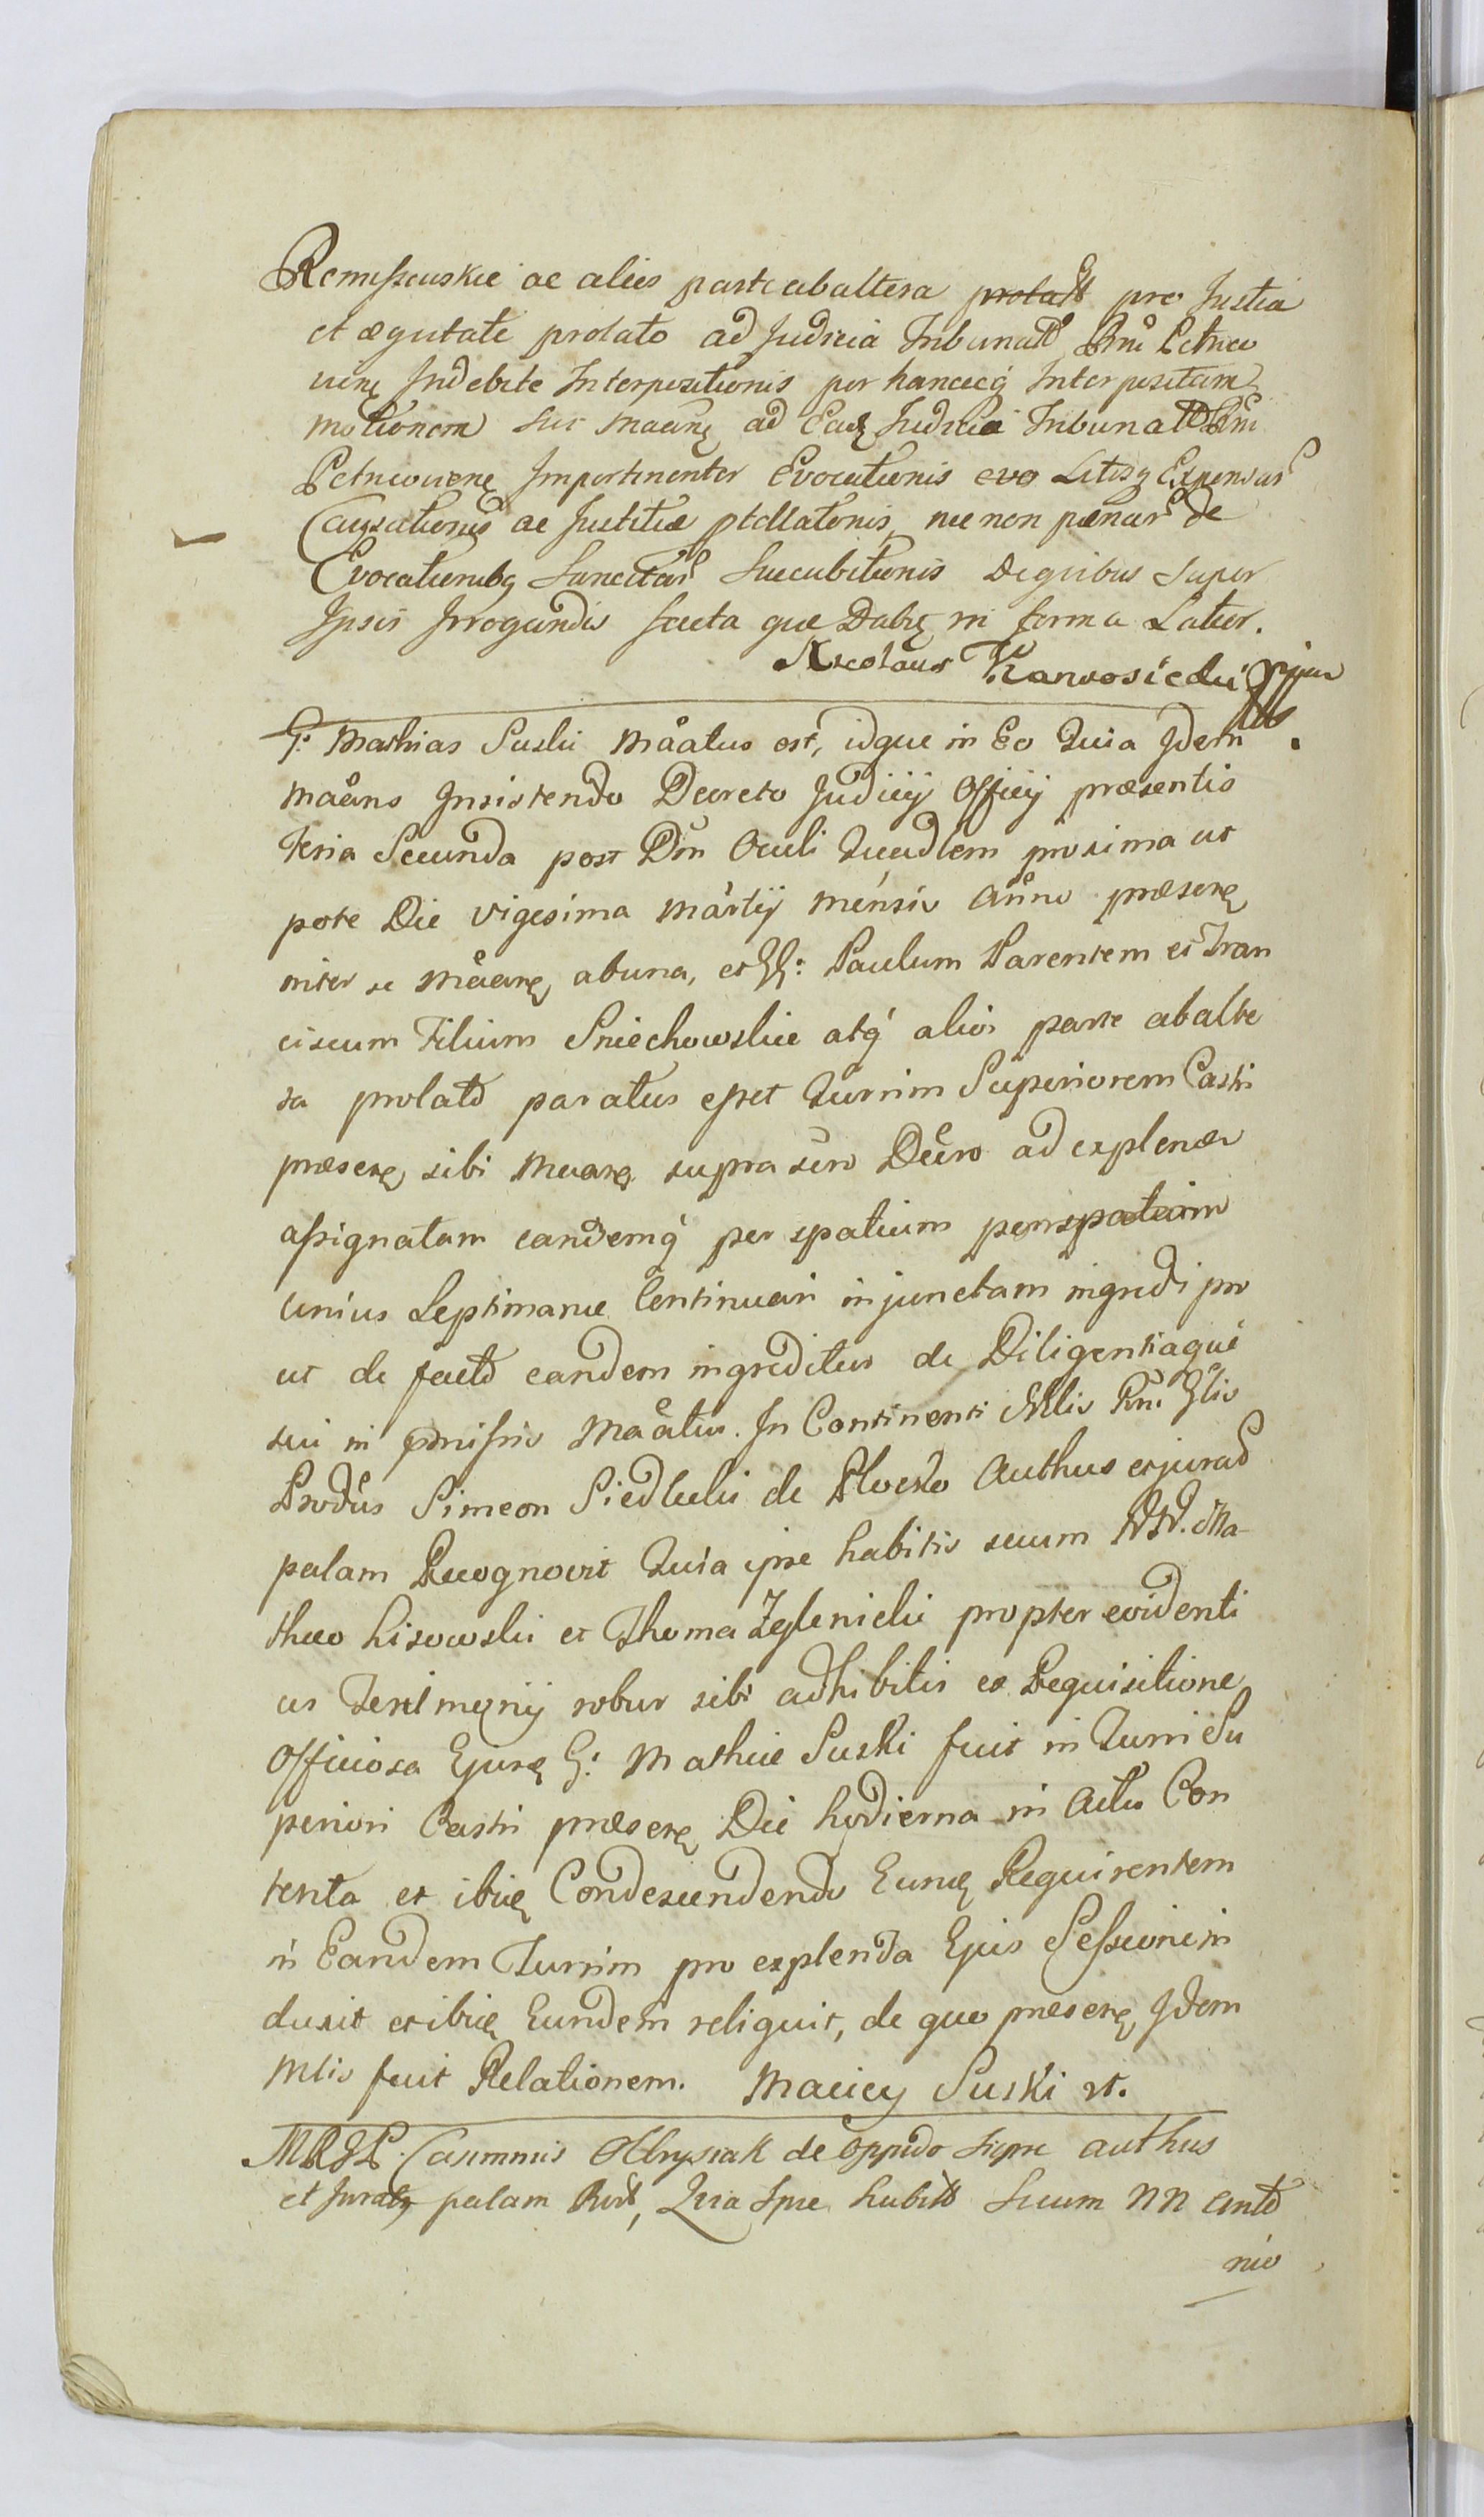 Remiszewskie ac aliis parte ab altera prolatt pro Justia
et æqutate prolato ad Judicia Tribunalt Rni Petrico
vienę Indebite Interpositionis per hancecq Interpositam
motionem sui Maanę ad Eadę Judicia Tribunalt Rni
Petricoviene Impertinenter Evocationis evo Litisq Expensar
Causationis ac Justitiæ ptellationis, nec non pænar de
Evocationibq Sancitar Succubitionis De quibus super
Ipsis Irrogandis facta quæ Dabię in forma Latior.
Nicolaus Karwosiecki
G: Mathias Suski Maatus est, idque in Eo Quia Idem
Maans Insistendo Decreto Judicij Officij præsentis
Feria Secunda post Dm Oculi Quadlem proxima ut
pote Die vigesima Martij mensis Anno præsenę
inter se Maanę abuna, et GG: Paulum Parentem et Fran
ciscum Filium Sniechowskie atq alios parte abalte
ra prolato paratus esset Turrim Superiorem Castri
præsenę sibi Maanę supra sero Decro ad explenor
assignatam eandemq per spatium per spatium
unius Septimanæ Continuari injunctam ingredi pro
ut de facto eandem ingreditur de Diligentiaque
sui in præmissis Maatur. In Continenti Mtlis Rni Glis
Produs Simeon Siedlecki de Plocko Authus et jurat
palam Recognovit Quia ipse habitis secum NN. Ma-
theo Lisowski et Thoma Zglenicki propter evidenti
us Testimonij robur sibi adhibitis ex Requisitione
Officiosa Ejusę G: Mathiæ Suski fuit in Turri Su
periori Castri præsenę Die hodierna in Actu Con
tenta et ibię Condescendendo Eunę Requirentem
in Eandem Turrim pro explenda Ejus Sessione in
duxit et ibię Eundem reliquit, de quo præsenę Idem
Mtlis fecit Relationem. Maciey Suski st.
MRGP. Casimirus Olbrysiak de Oppido Sierpc authus
et Juratq palam Rcit, Quia Ipse habitt Secum NN Anto
nio